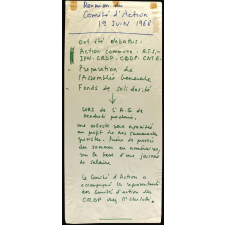 Réunion du
Comité d'Action
19 JUIN 1968
Ont été débattus :
Action commune - R.T.S.-
IPN - CRDP - CDDP - CNTE.
Préparation de
l'Assemblée Générale
Fonds de solidarité
LORS de l'A.G. de
vendredi prochain,
une collecte sera organisée
au profit de nos camarades
grévistes. Prière de prévoir
des sommes en numéraires,
sur la base d'une journée
de salaire
Le Comité d'Action a
accompagné les représentants
des Comités d'action des
CRDP chez M